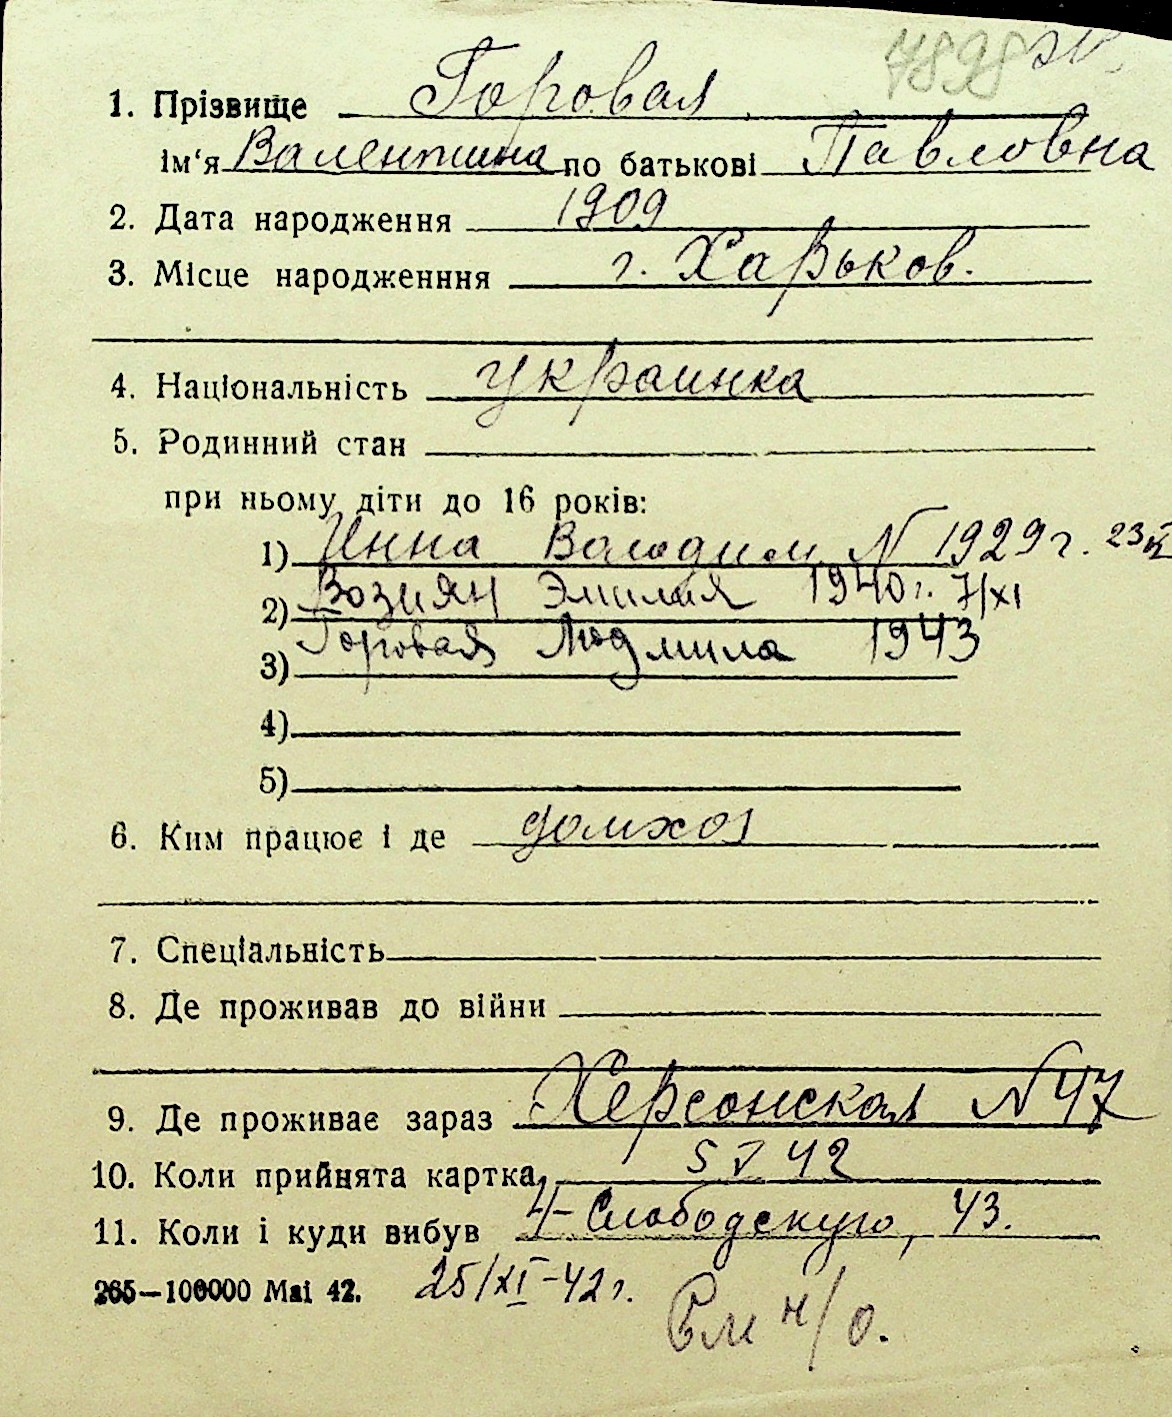 7898
1. Прізвище Горовая
ім‘я Валентина по батькові Павловна
2. Дата народження 1909
3. Місце народженння г. Харьков.
4. Національність украинка
5. Родинний стан
при ньому діти до 16 років:
1) Инна Володим N 1929 г. 23
2) Возиян Эмилия 1940 г. 7/XI
3) Горовая Людмила 1943
4)
5)
6. Ким працює і де домхоз
7. Спеціальність
8. Де проживав до війни
9. Де проживає зараз Херсонская N 47
10. Коли прийнята картка 5 V 42
11. Коли і куди вибув 4-Слободскую, 43.
265—100000 Mai 42. 25/XI-42 г.
н/о.